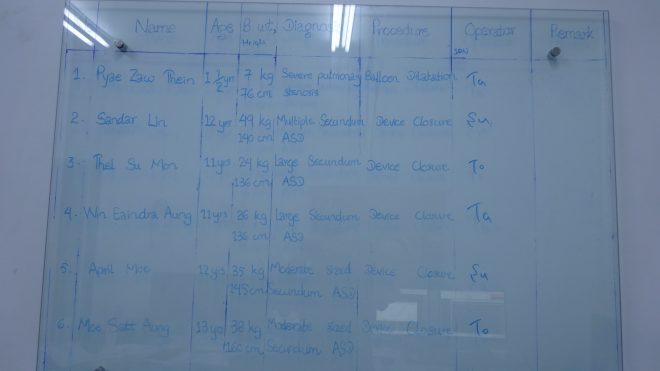 Name Age B.wt, Diagnosis Procedure Operator Remark
Height
1. Pyae Zaw Thein 1 1/2 yr 7 kg Severe pulmonary Balloon Dilatation Ta
76 cm stenosis
2. Sandar Lin 12 yrs 49 kg Multiple Secundum Device Closure Su
140 cm ASD
3. Thel Su Mon 11 yrs 24 kg Large Secundum Device Closure To
136 cm ASD
4. Win Eaindra Aung 11 yrs 36 kg Large Secundum Device Closure Ta
136 cm ASD
5. April Moe 12 yrs 35 kg Moderate sized Device Closure Su
145 cm Secundum ASD
6. Moe Satt Aung 13 yrs 38 kg Moderate sized Device Closure To
160 cm Secundum ASD